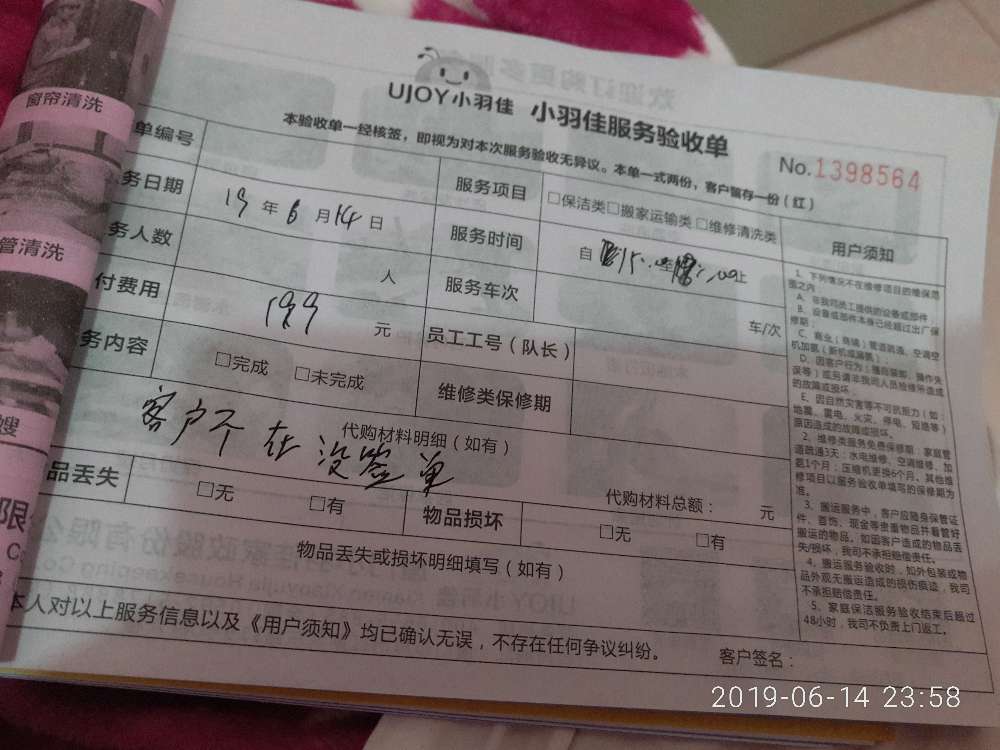 窗帘清洗
管清洗
嫂
限
UJOY小羽佳 小羽佳服务验收单
本验收单一经核签，即视为对本次服务验收无异议。本单一式两份，客户留存一份（红）
No.1398564
单编号
服务项目 □保洁类□搬家运输类 □维修清洗类
用户须知
务日期 19年6月14日
服务时间 自
至
止
务人数 人
服务车次 车/次
付费用 199元
员工工号（队长）
务内容 □完成 □未完成
维修类保修期
代购材料明细（如有）
客户不在没签单
代购材料总额： 元
品丢失 □无 □有
物品损坏 □无 □有
物品丢失或损坏明细填写（如有）
本人对以上服务信息以及《用户须知》均已确认无误，不存在任何争议纠纷。
客户签名：
1、下列情况不在维修项目的维保范
围之内
A、非我司员工提供的设备或部件；
B、设备或部件本身已经超过出厂保
修期；
C、商业（商铺）管道疏通、空调空
机加氨（新机或漏氨）；
D、因客户行为（擅自装卸、操作失
误等）或另请非我司人员检修所造成
的故障或损坏；
E、因自然灾害等不可抗拒力（如：
地震、雷电、火灾、停电、短路等）
原因造成的故障或损坏。
2、维修类服务免费保修期：家庭管
道疏通3天；水电维修、空调维修、加
氨1个月；压缩机更换6个月。其他维
修项目以服务验收单填写的保修期为
准。
3、搬运服务中，客户应随身保管证
件、首饰、现金等贵重物品并看管好
搬运的物品。如因客户造成的物品丢
失/损坏，我司不承担赔偿责任。
4、搬运服务验收时，如外包装或物
品外观无搬运造成的损伤痕迹，我司
不承担赔偿责任。
5、家庭保洁服务验收结束后超过
48小时，我司不负责上门返工。
2019-06-14 23:58